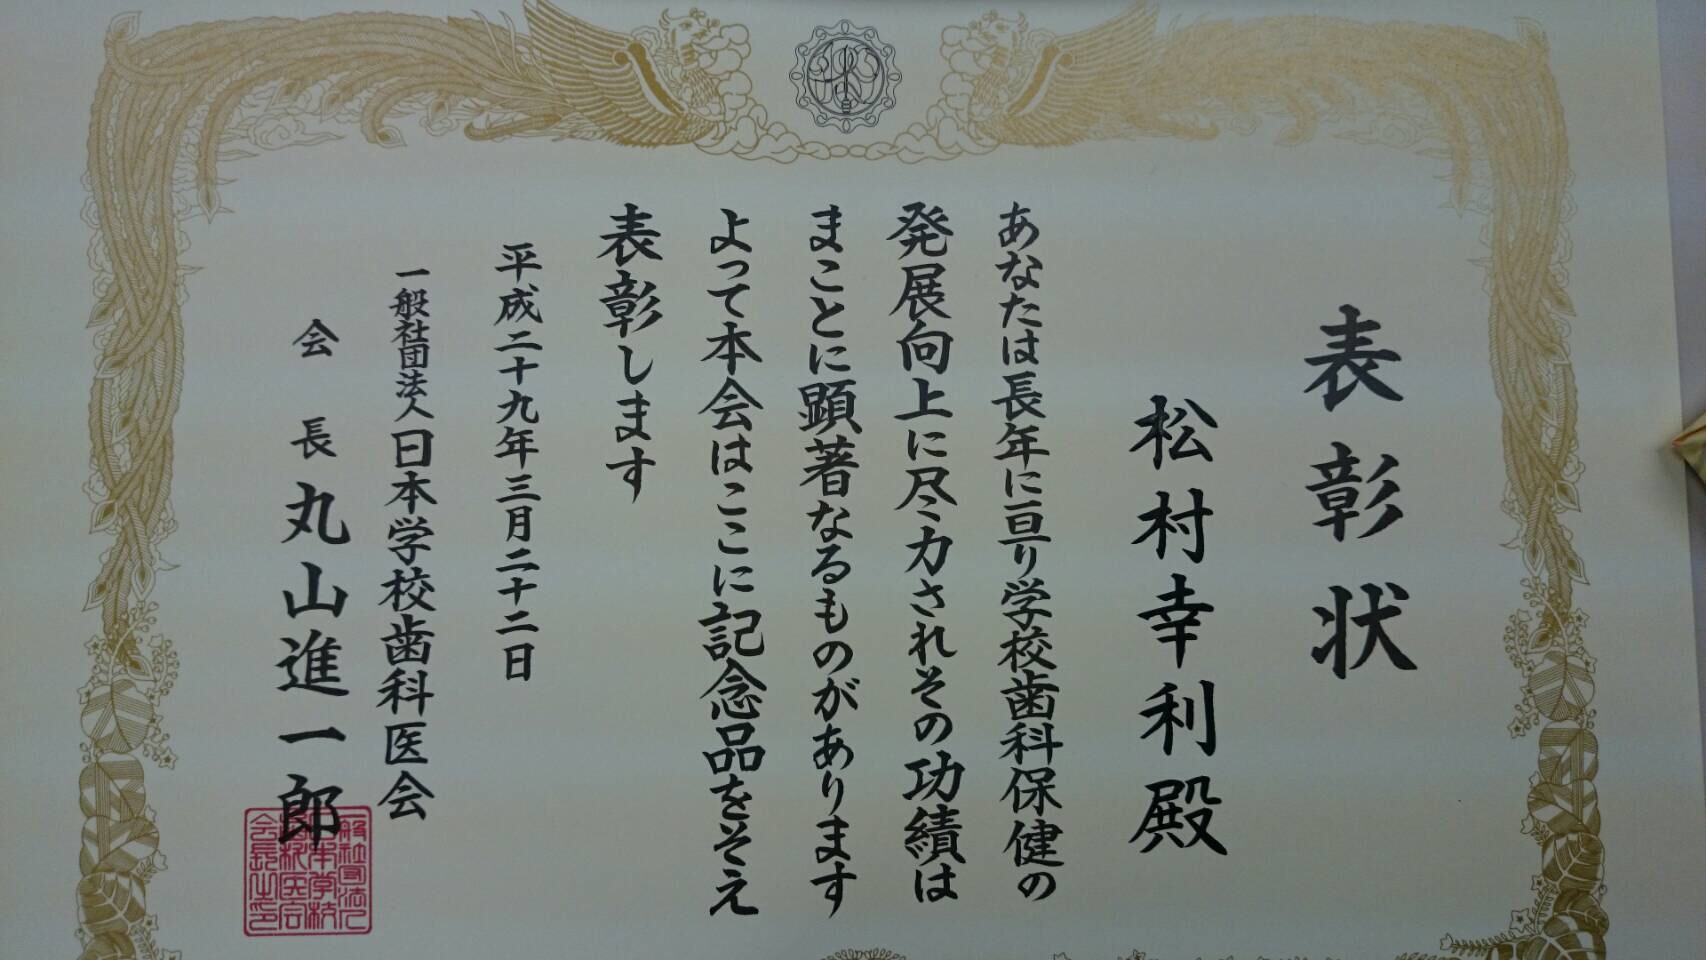 表彰状
松村幸利殿
あなたは長年に亘り学校歯科保健の
発展向上に尽力されその功績は
まことに顕著なるものがあります
よって本会はここに記念品をそえ
表彰します
平成二十九年三月二十二日
一般社団法人日本学校歯科医会
会長丸山進一郎